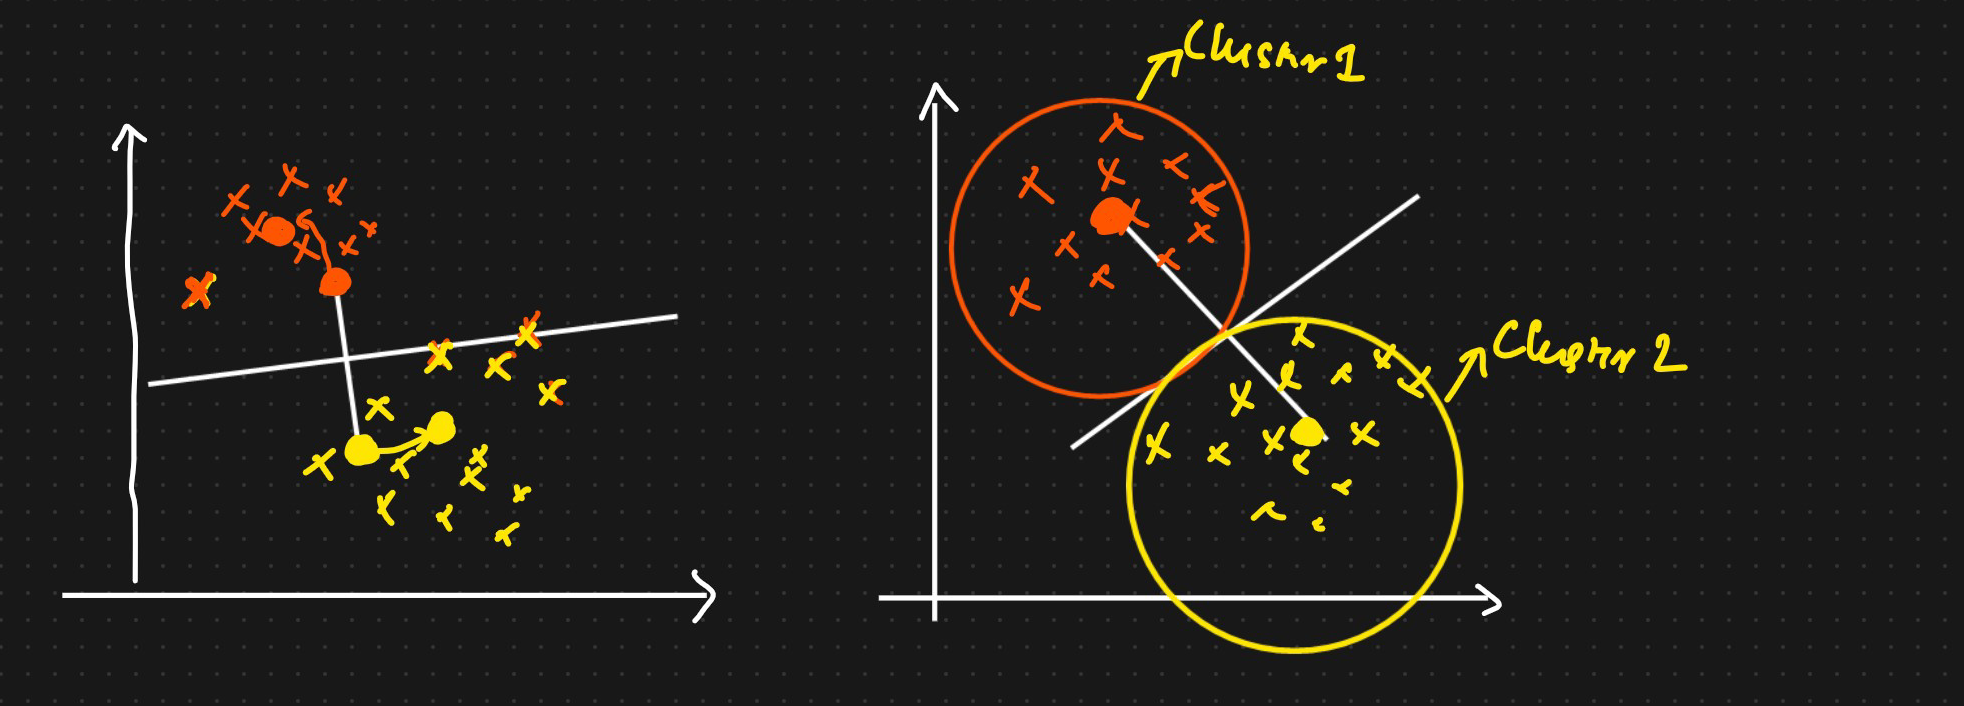 Cluster 1
Cluster 2